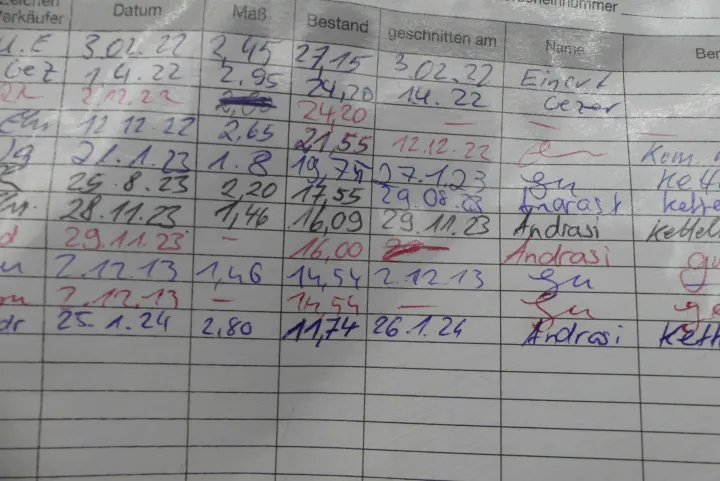 zeichen Datum Maß Bestand geschnitten am Name Ber
erkäufer
3.02.22 2,45 27,15 3.02.22 Einert
Cez 1.4.22 2.95 24,20 14.22 Cezer
2.12.22 24,20 — —
12.12.22 2,65 21,55 12.12.22 Kom.
21.1.23 1.8 19,75 27.1.23 gu
25.8.23 2,20 17,55 29.08.23 Andrasi
28.11.23 1,46 16,09 29.11.23 Andrasi
29.11.23 — 16,00 Andrasi
2.12.13 1,46 14,54 2.12.13 gu
2.12.13 — 14,54 — gu
dr 25.1.24 2,80 11,74 26.1.24 Andrasi